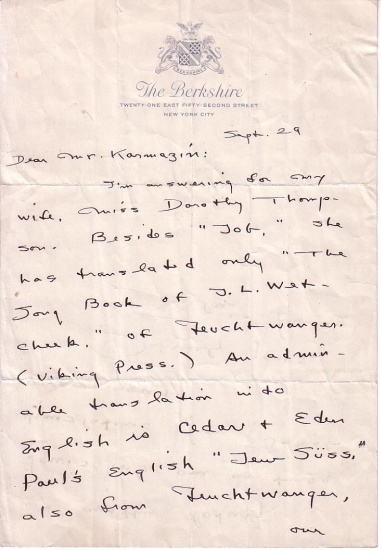 The Berkshire
TWENTY-ONE EAST FIFTY-SECOND STREET
NEW YORK CITY
Sept. 29
Dear Mr. Karmazin:
I'm answering for my
wife, Miss Dorothy Thomp-
son. Besides "Job," she
has translated only "The
Song Book of J. L. Wet-
cheek," of Feuchtwanger.
(Viking Press.) An admir-
able translation into
English is Cedar & Eden
Paul's English "Jew Süss,"
also from Feuchtwanger,
our